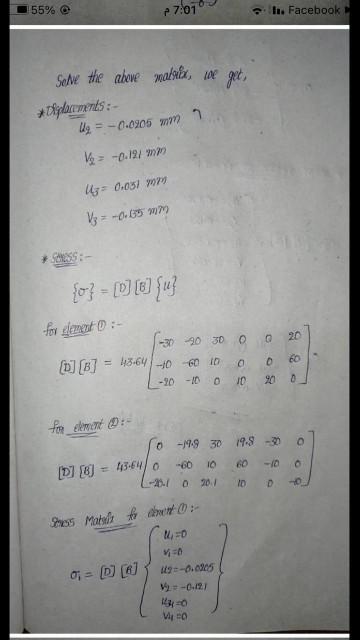 55% م 7:01 Facebook
Solve the above matrix, we get,
* Displacements :-
u2 = -0.0205 mm
V2 = -0.121 mm
u3 = 0.031 mm
V3 = -0.135 mm
* Stress :-
{σ} = [D] [B] {u}
for element ① :-
[D] [B] = 43.64 [ -30 -20 30 0 0 20
-10 -60 10 0 0 60
-20 -10 0 10 20 0 ]
for element ② :-
[D] [B] = 43.64 [ 0 -19.8 30 19.8 -30 0
0 -60 10 60 -10 0
-20.1 0 20.1 10 0 -10 ]
Stress Matrix for element ① :-
σ1 = [D] [B] { u1=0
v1=0
u2=-0.0205
V2=-0.121
u4=0
V4=0 }